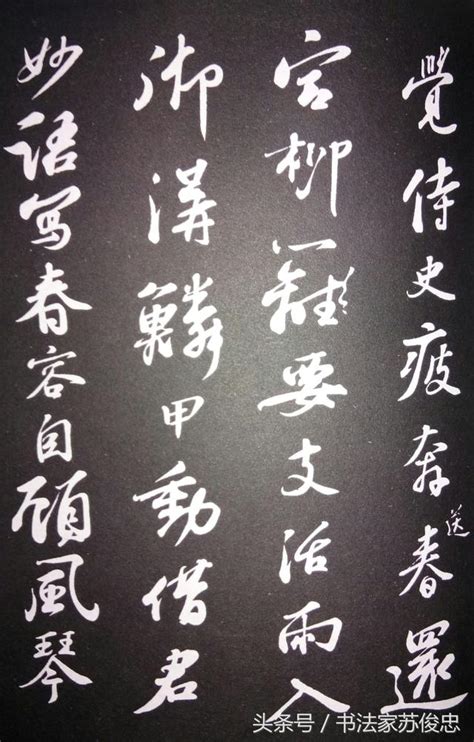 覺侍史疲奔送春還
宮柳要支活雨入
御溝鱗甲動借君
妙語寫春容自顧風琴
头条号/书法家苏俊忠